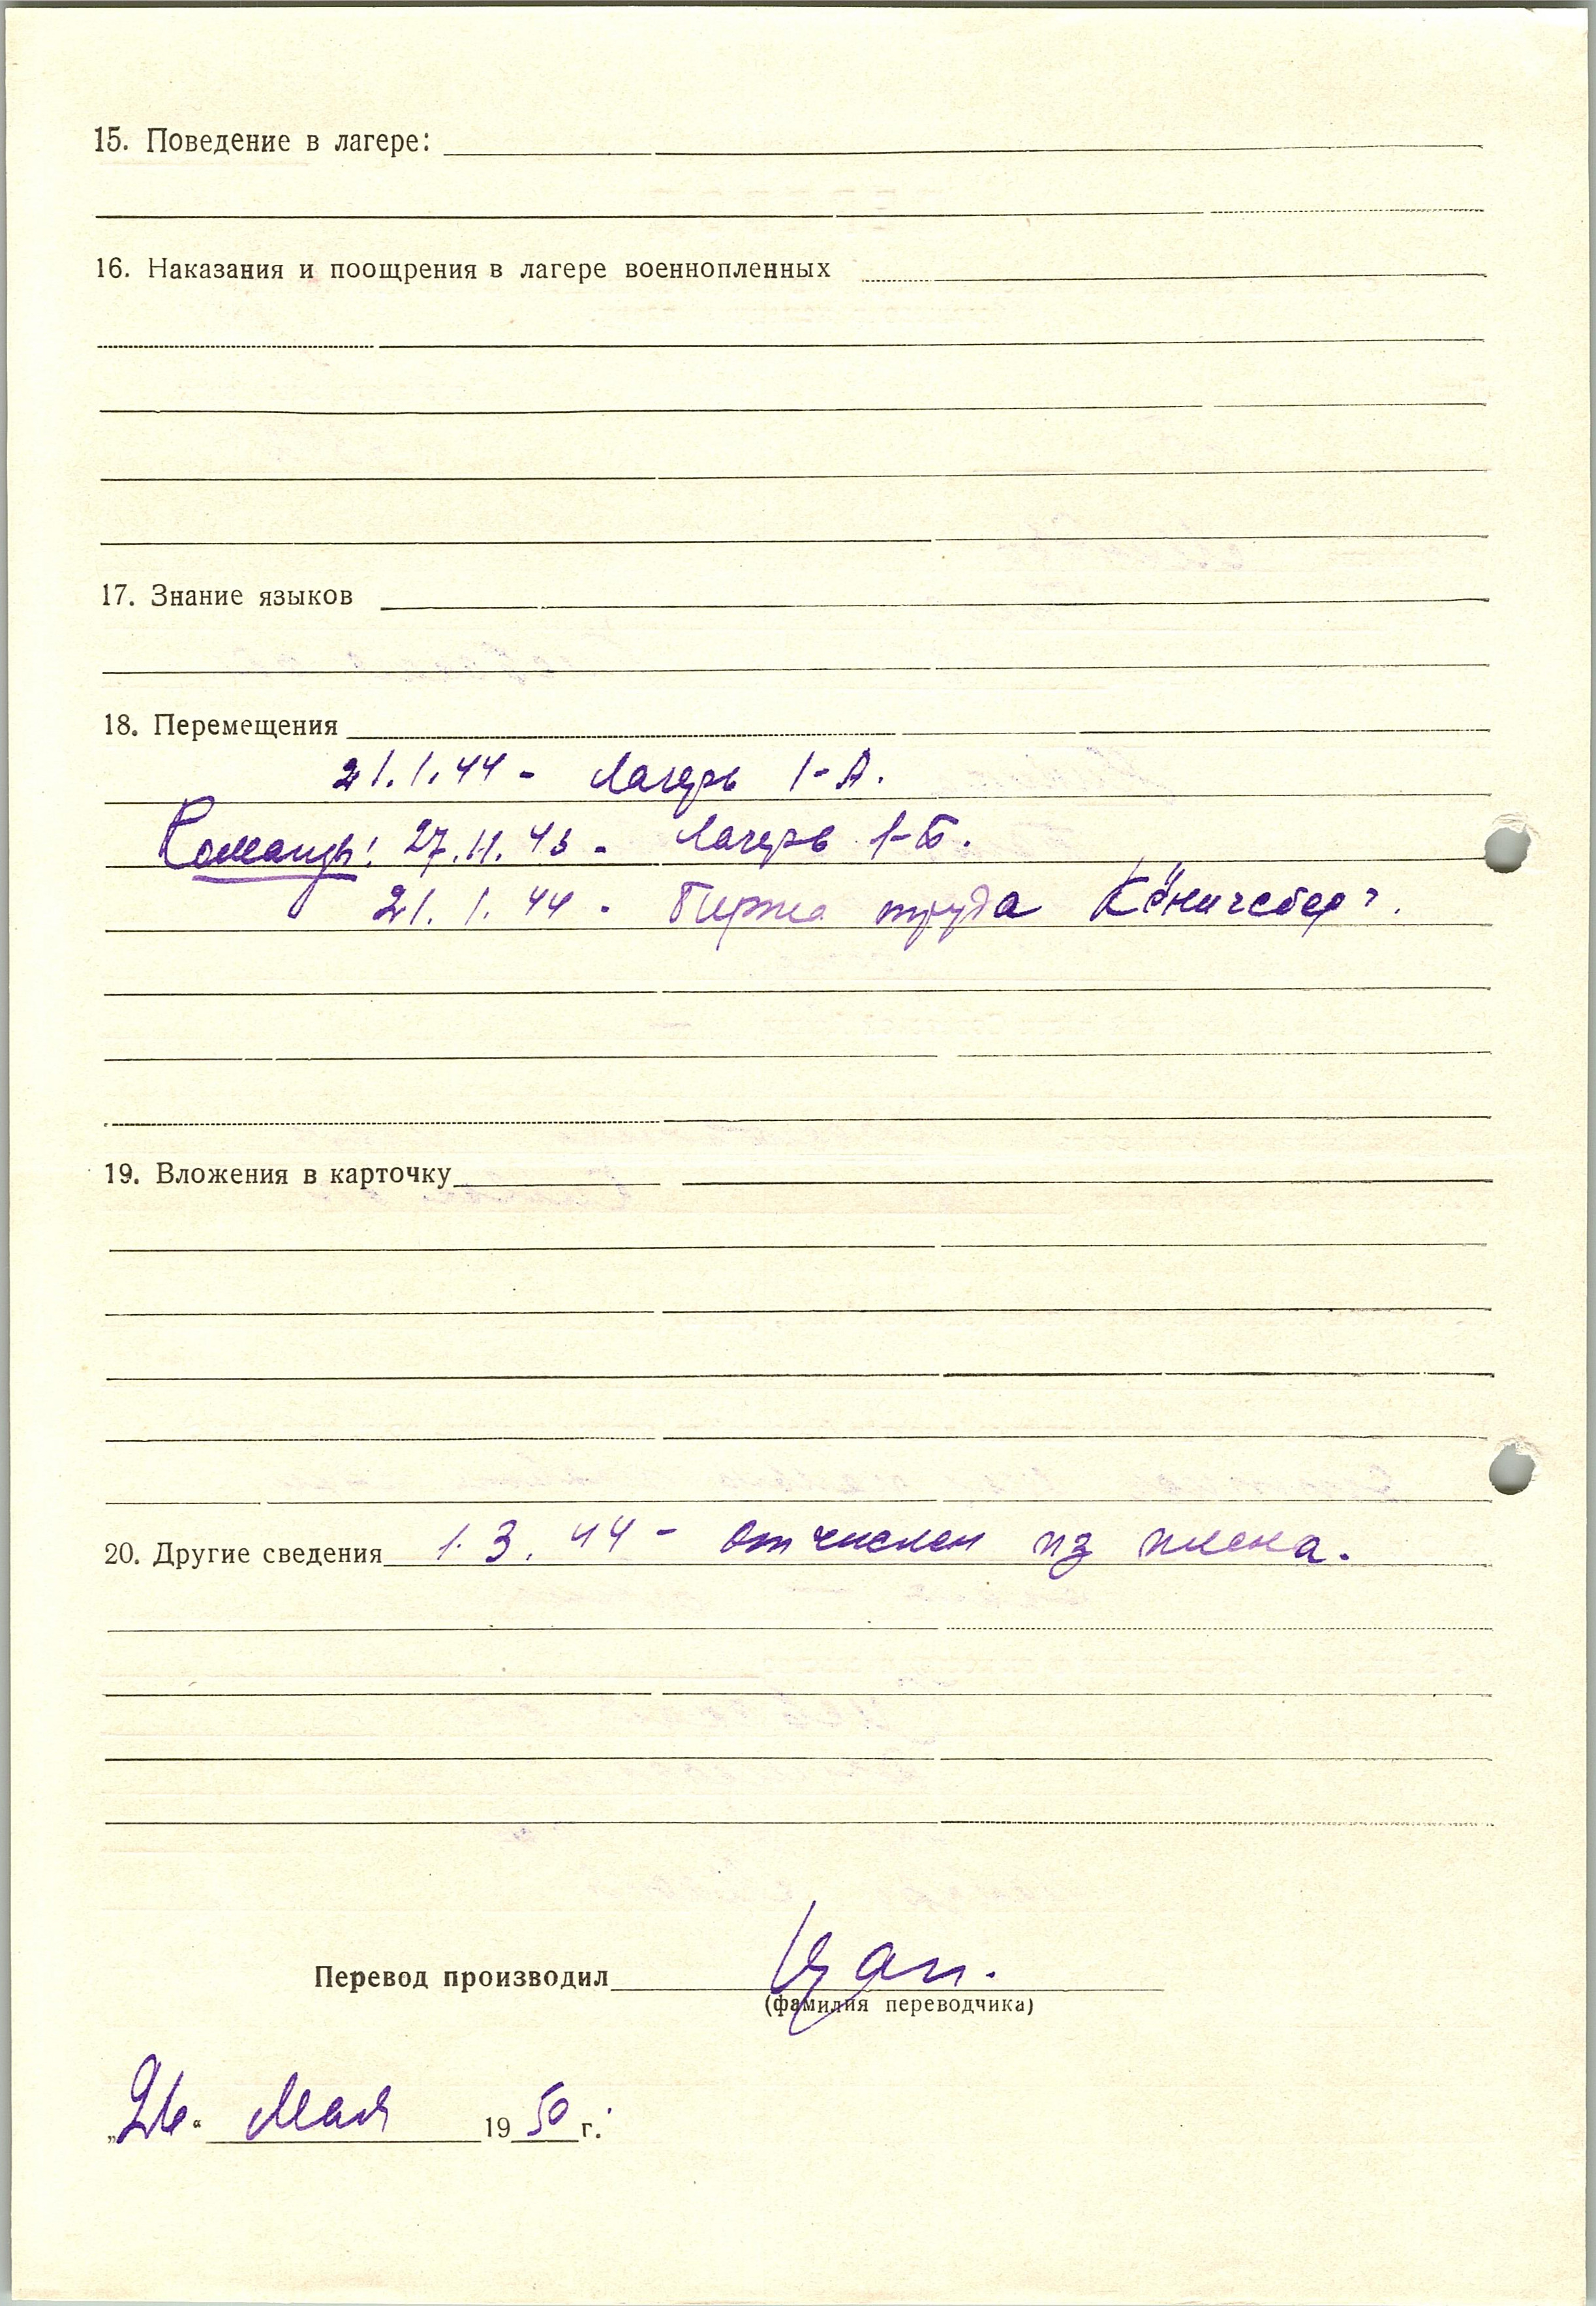 15. Поведение в лагере:
16. Наказания и поощрения в лагере военнопленных
17. Знание языков
18. Перемещения
21.1.44 - Лагерь 1-А.
Команды: 27.11.43 - Лагерь 1-Б.
21.1.44 - Биржа труда Кёнигсберг.
19. Вложения в карточку
20. Другие сведения 1.3.44 - отчислен из плена.
Перевод производил
(фамилия переводчика)
„26“ Мая 1950 г.